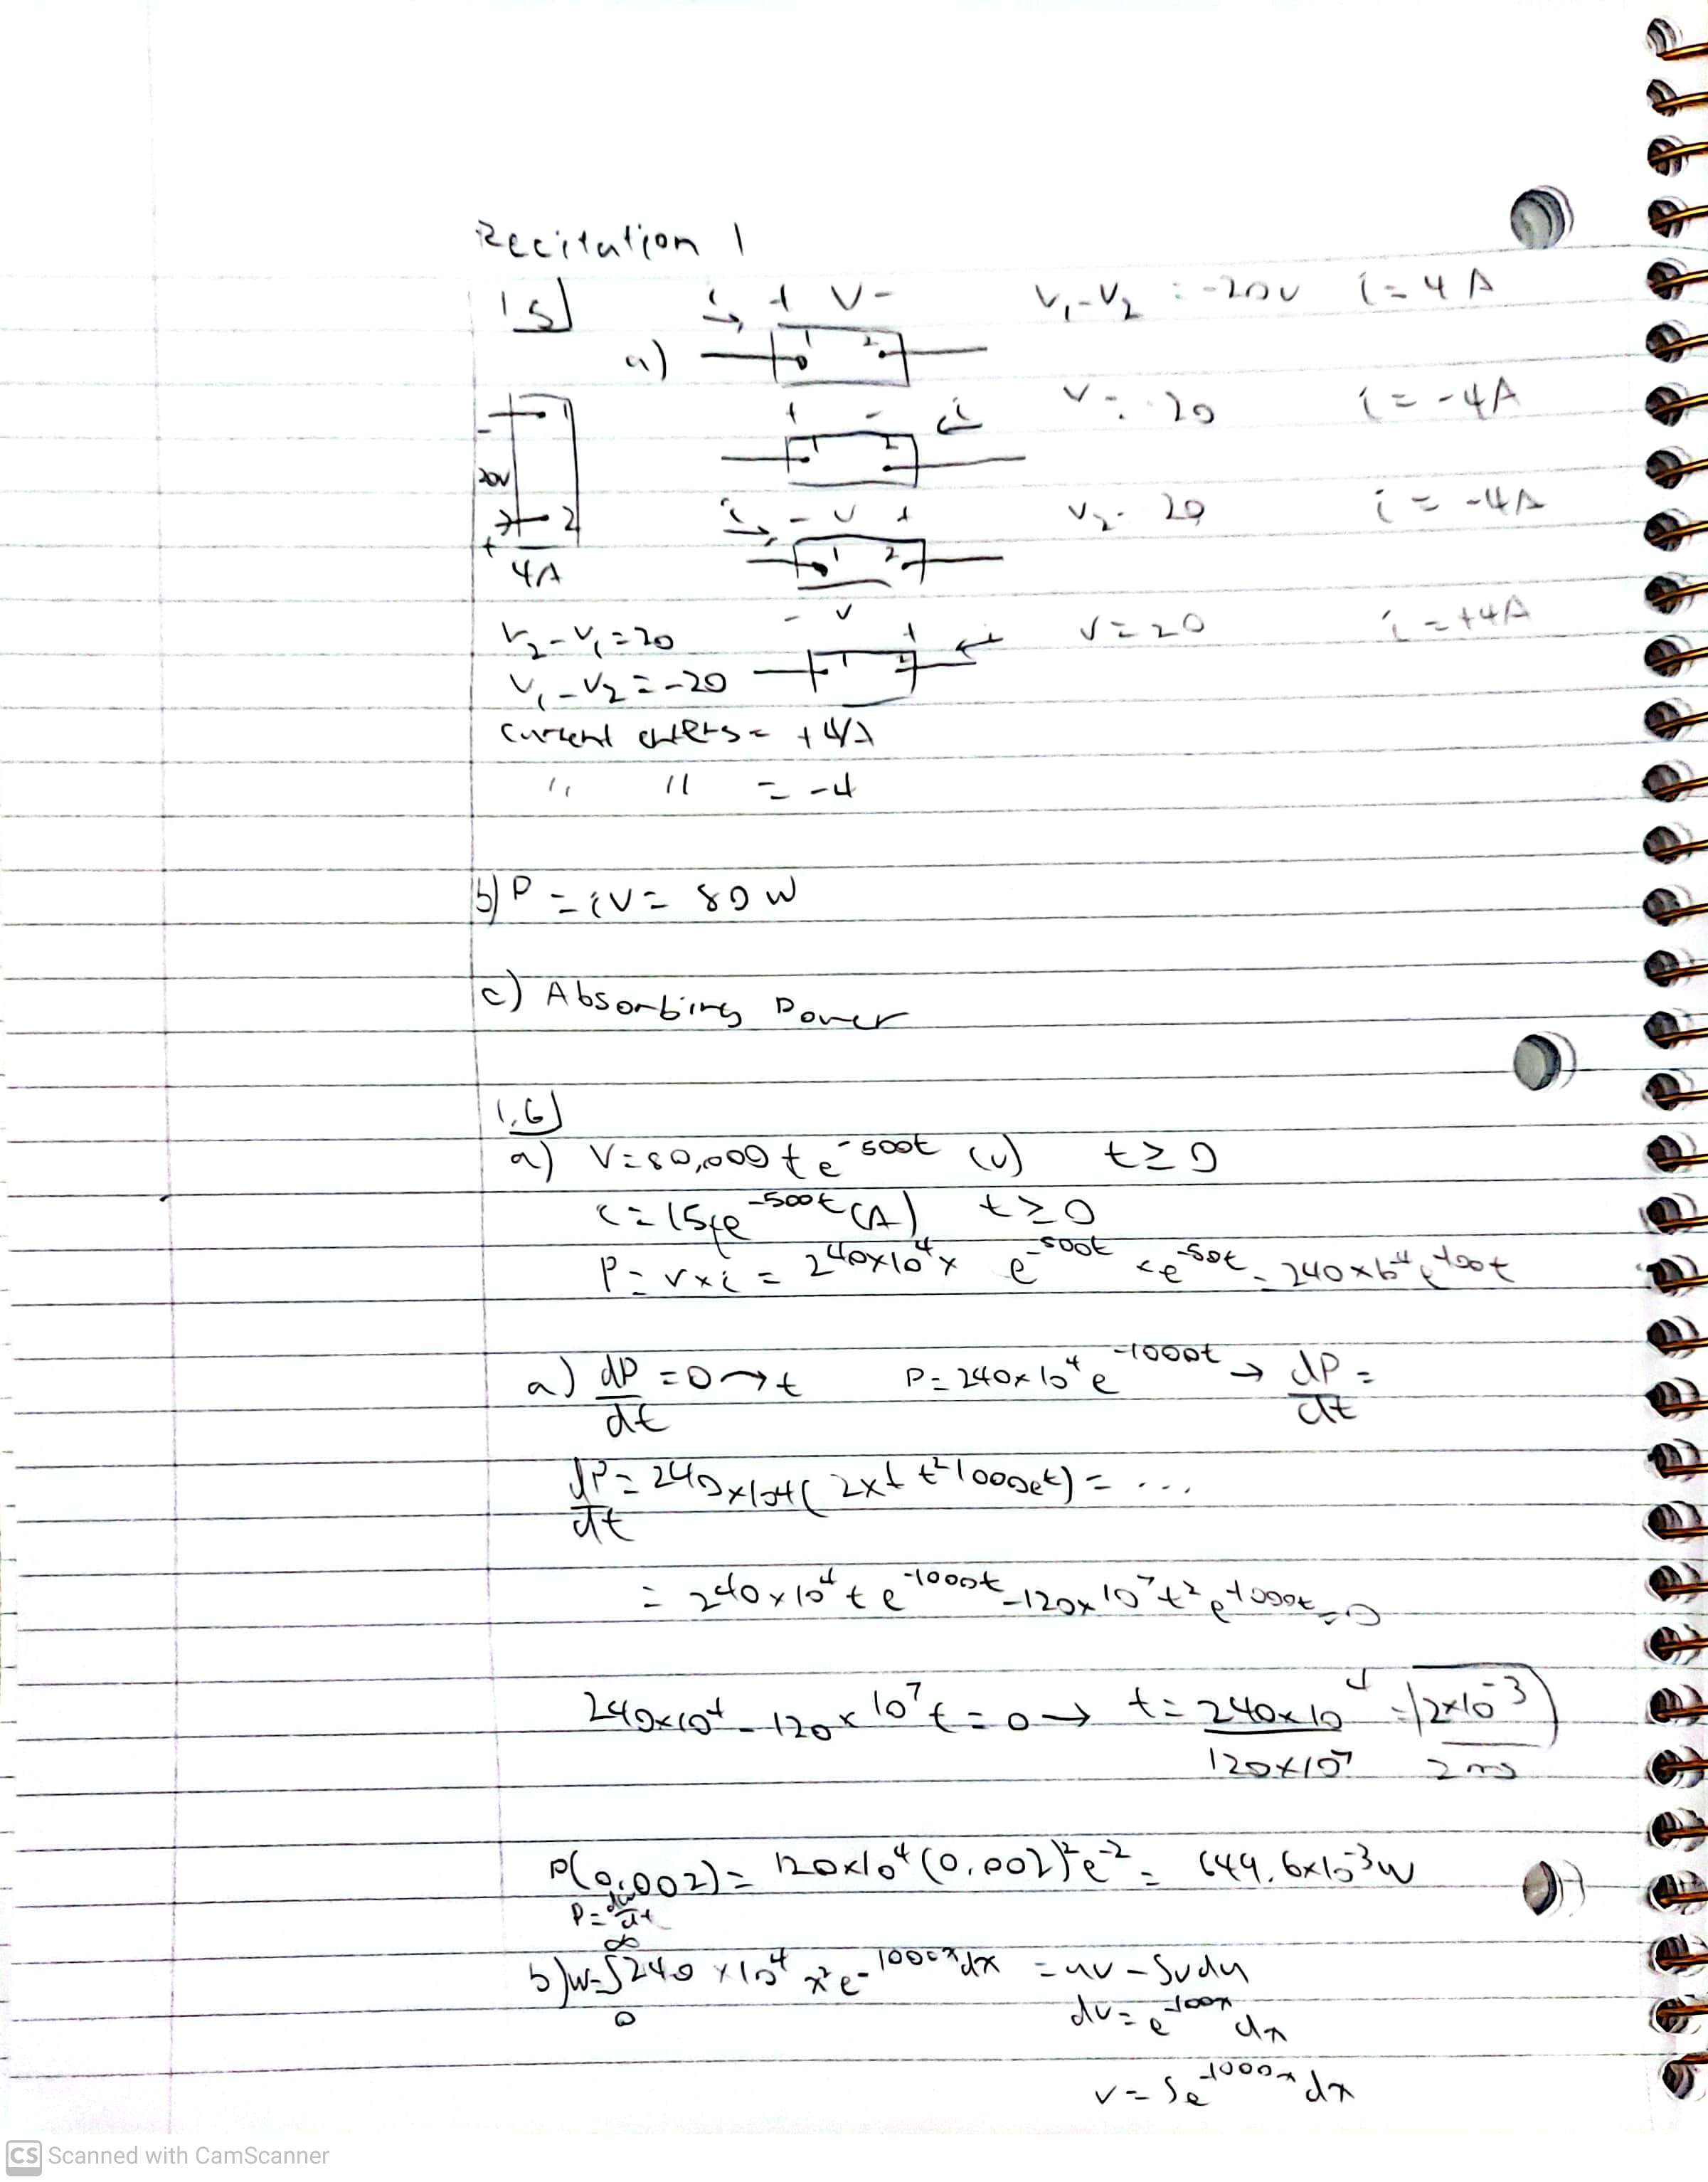 Recitation 1
1.5]
i + V - V₁-V₂ = -20V i = 4 A
a) 1 2
+ - i V = -20 i = -4A
1 2
- 1
20V
+ 2
4A
i - V + V = 20 i = -4A
1 2
- V + i V = 20 i = +4A
1 2
V₂-V₁ = 20
V₁-V₂ = -20
Current enters = +4A
" " = -4
b) P = iV = 80 W
c) Absorbing Power
1.6]
a) V = 80,000 t e^-500t (v) t ≥ 0
i = 15te^-500t (A) t ≥ 0
P = v×i = 240×10⁴ × e^-500t × e^-50t = 240×10⁴
a) dP/dt = 0 → t P = 240×10⁴ e^-1000t → dP/dt =
dP/dt = 240×10⁴( 2×t t² 1000et) = ...
= 240×10⁴ t e^-1000t - 120×10⁷ t² e^-1000t = 0
240×10⁴ - 120×10⁷ t = 0 → t = 240×10⁴/120×10⁷ = 2×10⁻³
2 ms
P(0.002) = 120×10⁴ (0.002)² e⁻² = 649.6×10⁻³ W
P = dw/dt
b) W = ∫₀^∞ 240 × 10⁴ x² e^-1000x dx = uv - ∫vdu
dv = e^-100x dx
v = ∫e^-1000x dx
CS Scanned with CamScanner